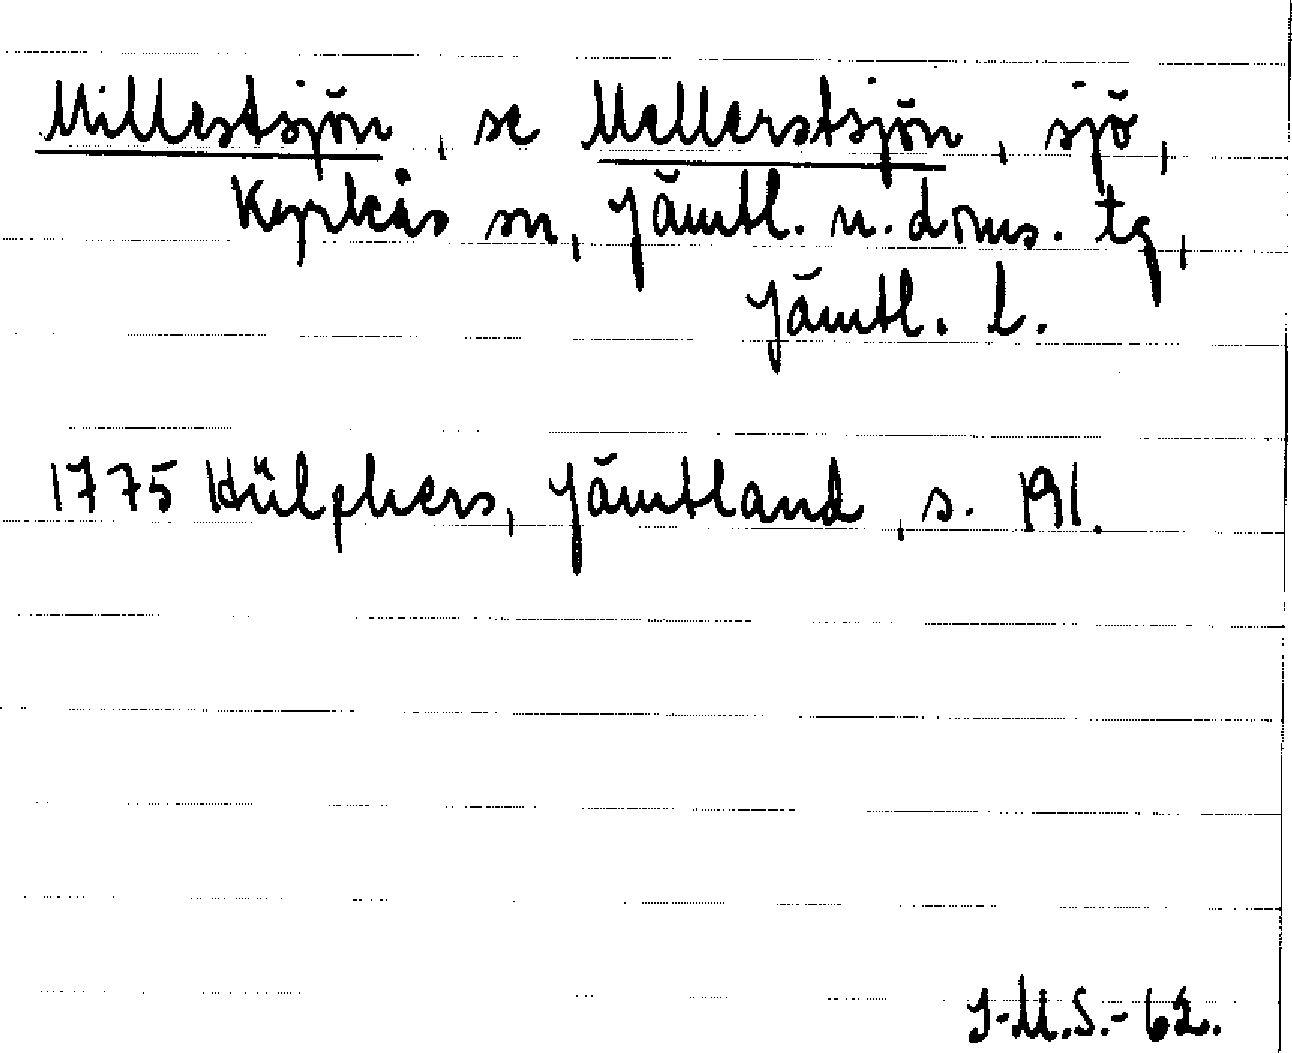 Millestsjön, se Mellerstsjön, sjö,
Kyrkås sn, Jämtl. n. doms. tg,
Jämtl. l.
1775 Hülphers, Jämtland, s. 191.
J-M.S.-62.